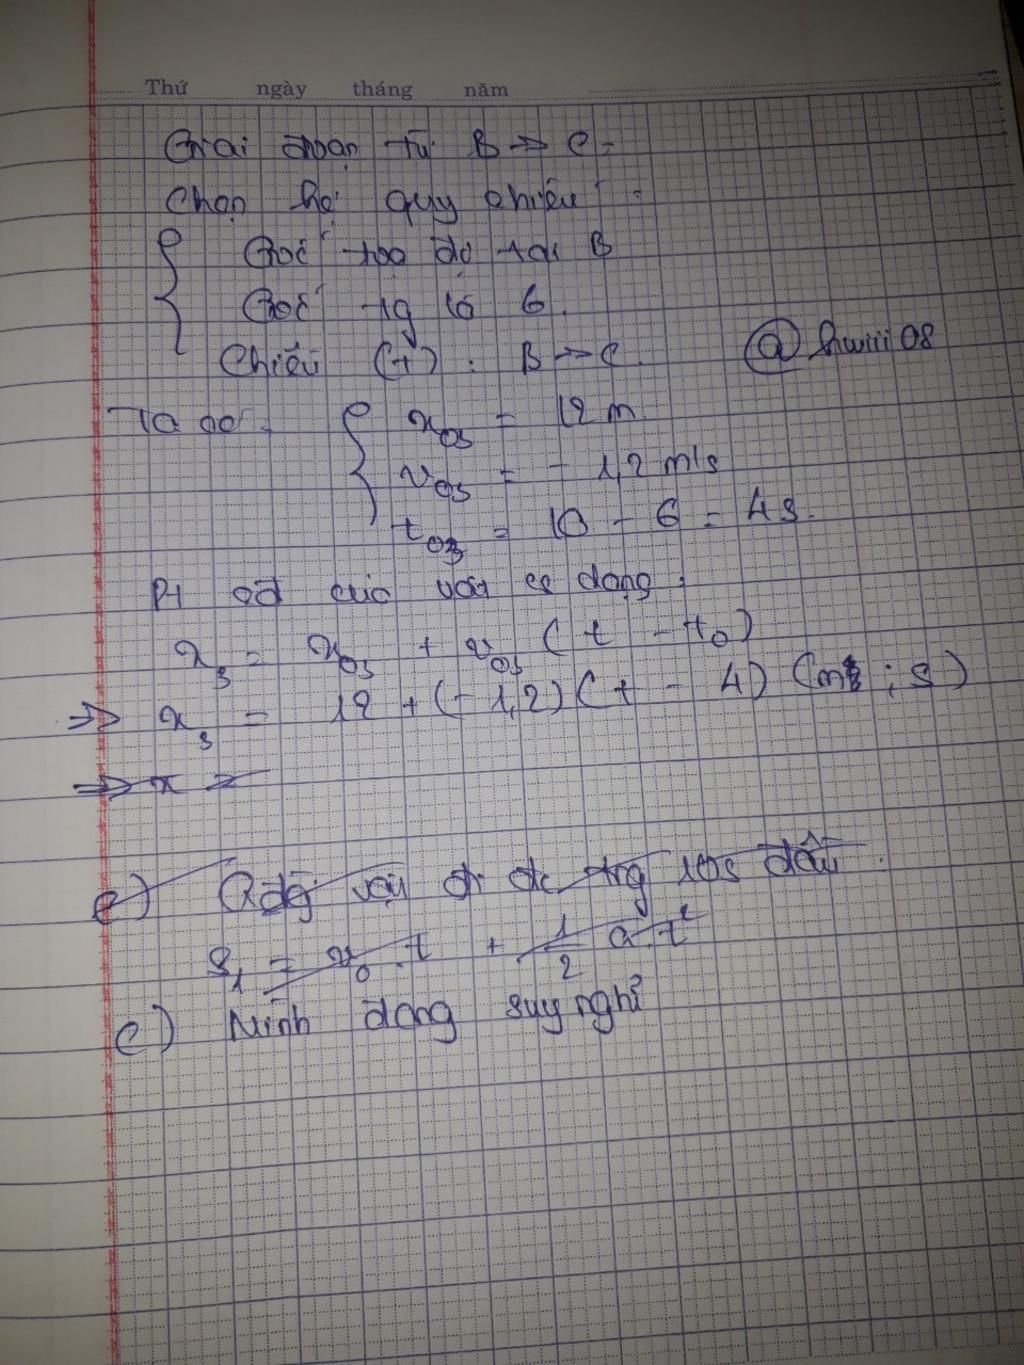 Thứ ngày tháng năm
Giai đoạn từ B → C:
Chọn hệ quy chiếu :
Gốc toạ độ tại B
Gốc tg là 6.
Chiều (+) : B → C.
@huiii08
Ta có: x₀₃ = 12 m
v₀₃ = - 1,2 m/s
t₀₃ = 10 - 6 = 4s.
Pt cđ của vật có dạng :
x₃ = x₀₃ + v₀₃ (t - t₀)
⇒ x₃ = 12 + (-1,2)(t - 4) (m ; s)
⇒ x =
c) Qđg vật đi đc trg 10s đầu.
S₁ = v₀.t + 1/2 a.t²
c) Mình đang suy nghĩ